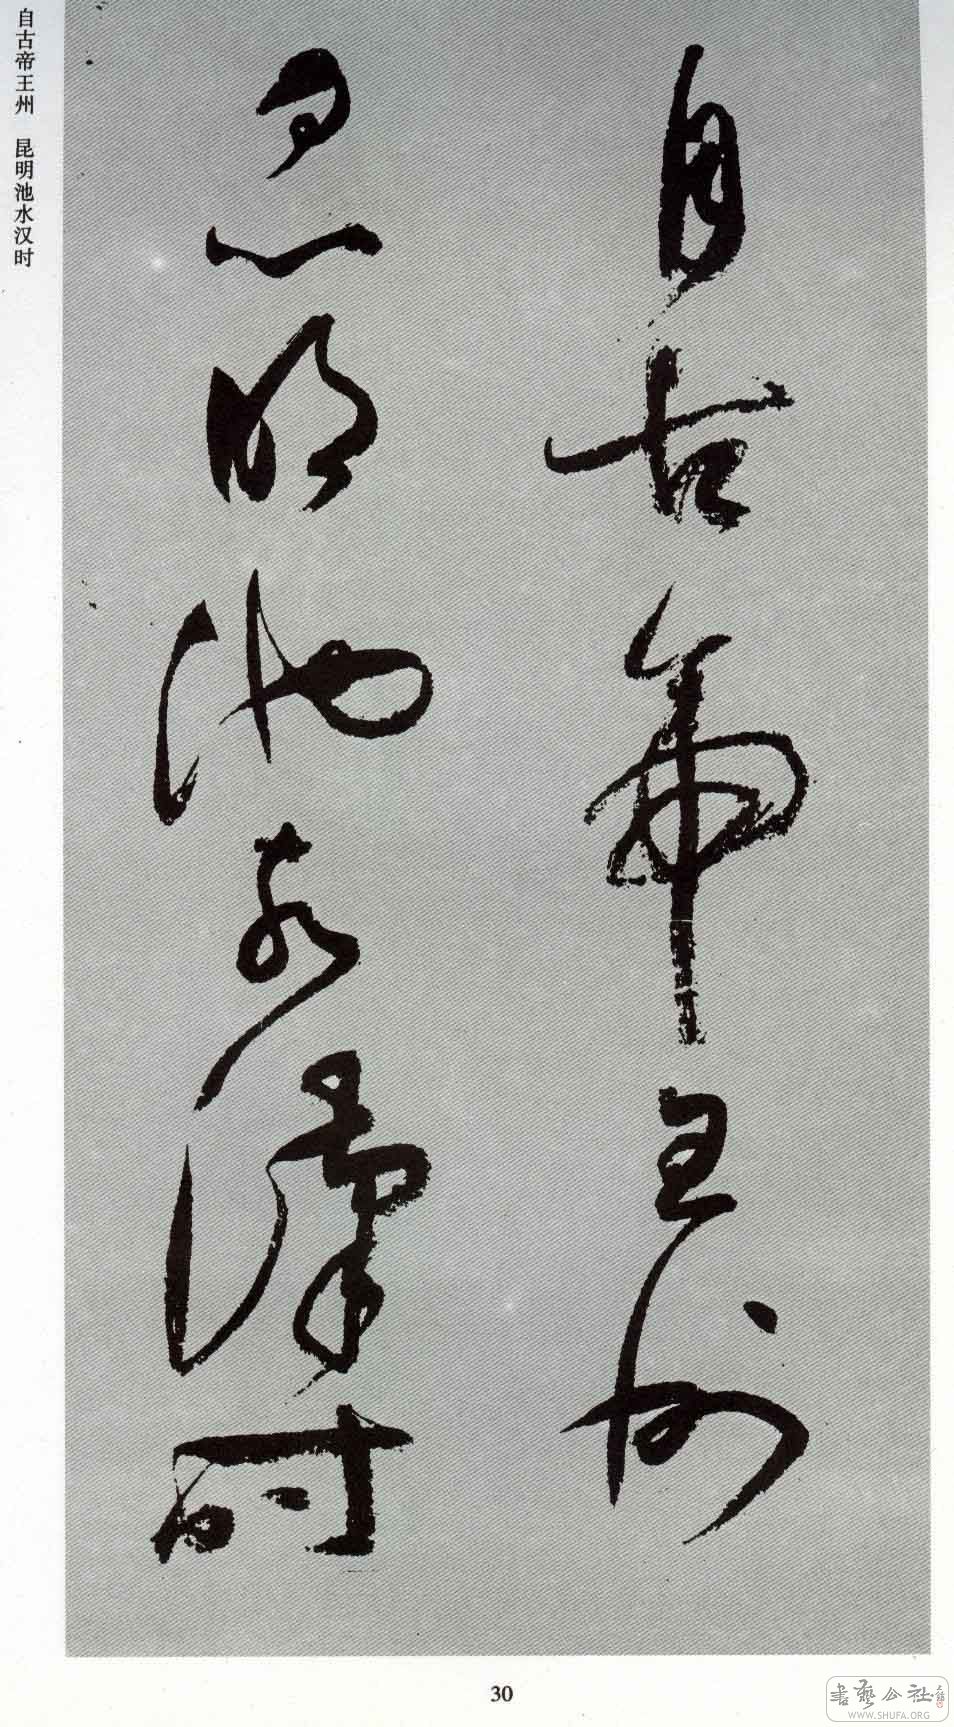 自古帝王州
昆明池水漢時
自古帝王州 昆明池水汉时
30
書藝公社
WWW.SHUFA.ORG